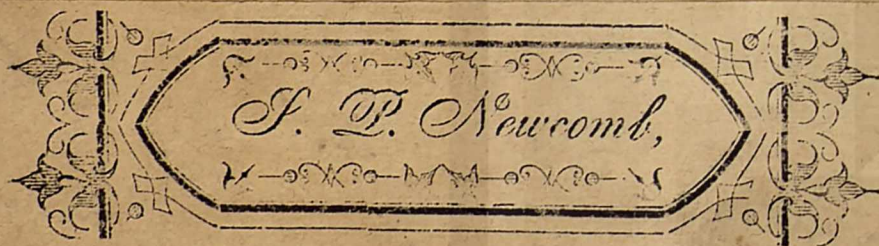 J. P. Newcomb,